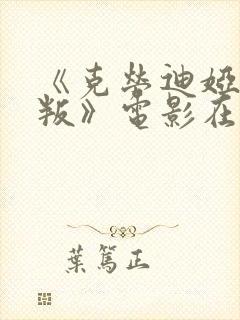 《克勞迪婭
叛》電影在
葉篤正